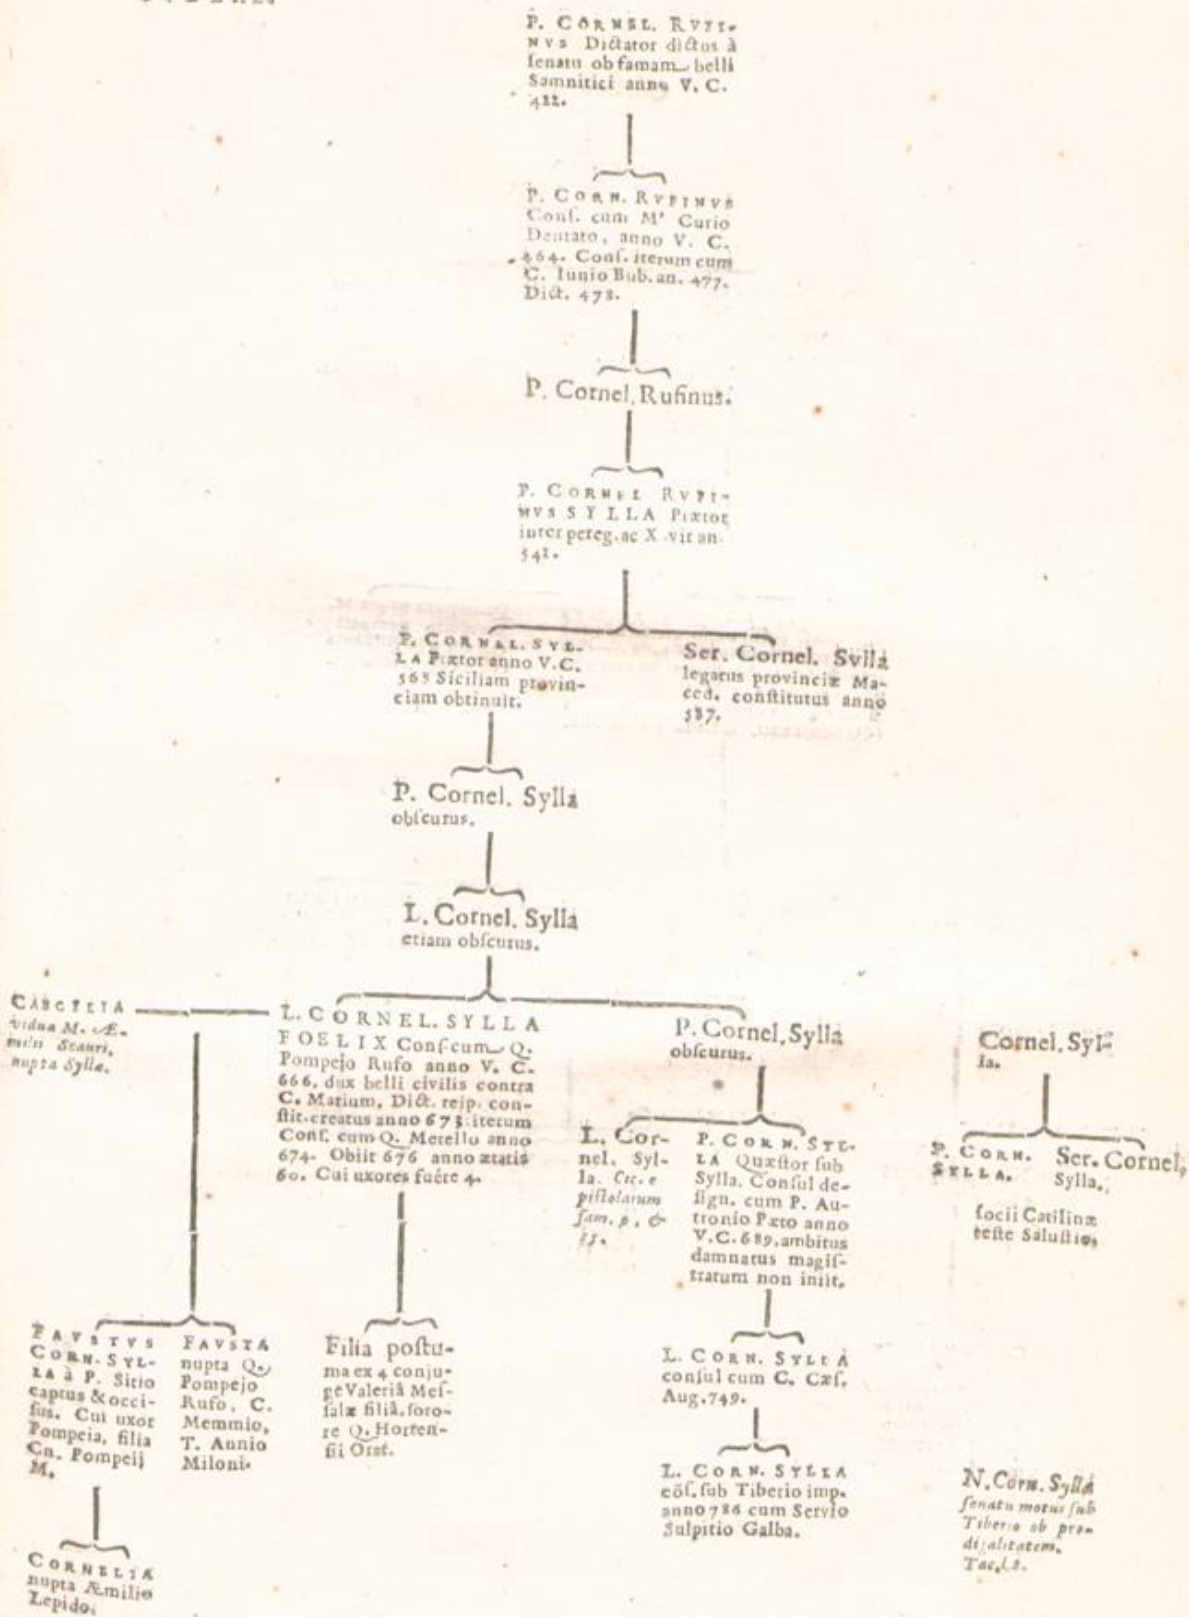 P. CORNEL. RVFI-
NVS Dictator dictus à
senatu ob famam belli
Samnitici anno V. C.
422.
P. CORN. RVFINVS
Cons. cum M' Curio
Dentato, anno V. C.
464. Cons. iterum cum
C. Iunio Bub. an. 477.
Dict. 478.
P. Cornel. Rufinus.
P. CORNEL RVFI-
NVS SYLLA Prætor
inter pereg. ac X. vir an.
541.
P. CORNEL. SYL-
LA Prætor anno V.C.
565 Siciliam provin-
ciam obtinuit.
Ser. Cornel. Sylla
legatus provinciæ Ma-
ced. constitutus anno
587.
P. Cornel. Sylla
obscurus.
L. Cornel. Sylla
etiam obscurus.
vidua M. Æ-
milii Scauri,
nupta Syllæ.
L. CORNEL. SYLLA
FOELIX Cons cum Q.
Pompejo Rufo anno V. C.
666. dux belli civilis contra
C. Marium, Dict. reip. con-
stit. creatus anno 673. iterum
Cons. cum Q. Metello anno
674. Obiit 676 anno ætatis
60. Cui uxores fuére 4.
P. Cornel. Sylla
obscurus.
Cornel. Syl-
la.
L. Cor-
nel. Syl-
la. Cic. e
pistolarum
fam. 9. &
15.
P. CORN. SYL-
LA Quæstor sub
Sylla. Consul de-
sign. cum P. Au-
tronio Pæto anno
V.C. 689. ambitus
damnatus magis-
tratum non iniit.
P. CORN.
SYLLA.
Ser. Cornel.
Sylla.
socii Catilinæ
teste Salustio.
FAVSTVS
CORN. SYL-
LA à P. Sitio
captus & occi-
sus. Cui uxor
Pompeia, filia
Cn. Pompeij
M.
FAVSTA
nupta Q.
Pompejo
Rufo, C.
Memmio,
T. Annio
Miloni.
Filia postu-
ma ex 4 conju-
ge Valeriâ Mes-
salæ filiâ, soro-
re Q. Horten-
sii Orat.
L. CORN. SYLLA
consul cum C. Cæs.
Aug. 749.
L. CORN. SYLLA
cōs. sub Tiberio imp.
anno 786 cum Servio
Sulpitio Galba.
N. Corn. Sylla
senatu motus sub
Tiberio ob pro-
digalitatem.
Tac. l. 2.
CORNELIA
nupta Æmilio
Lepido.